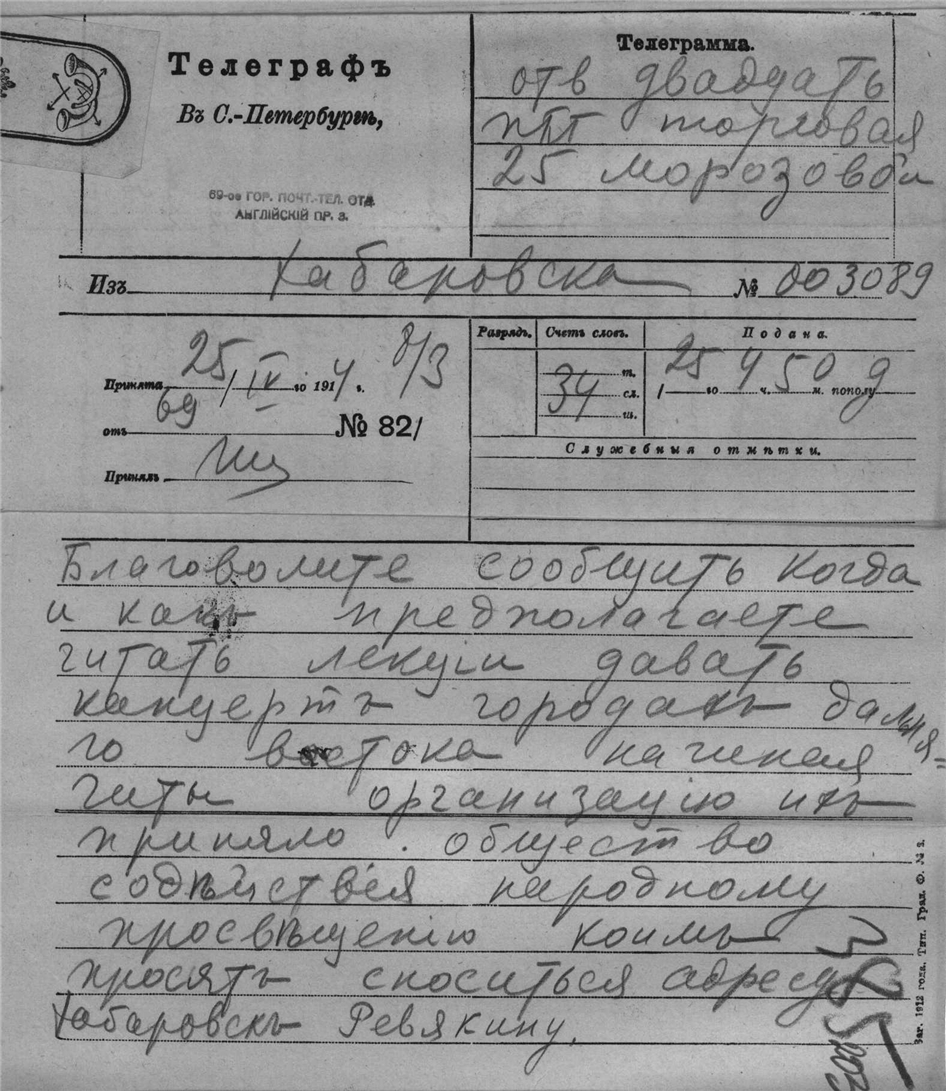 Телеграфъ
Въ С.-Петербургѣ,
69-ое ГОР. ПОЧТ.-ТЕЛ. ОТД.
АНГЛІЙСКІЙ ПР. 3.
Телеграмма.
отв двадцать
птт торговая
25 морозовой
Изъ Хабаровска № 003089
Принята 25/IV го 1914 г. 8/3
отъ 69 № 82/
Принялъ
Разрядъ. Счетъ словъ. Подана.
т.
34 сл.
ш.
25 го 4 ч. 50 м. пополу д
Служебныя отмѣтки.
Благоволите сообщить когда
и какъ предполагаете
читать лекціи давать
канцертъ городахъ дальня-
го востока начиная
читы организацію ихъ
приняло обществo
содѣйствія народному
просвѣщенію коимъ
просятъ сноситься адресу
Хабаровскъ Ревякину.
Заг. 1912 года. Тип. Град. Ф. № 2.